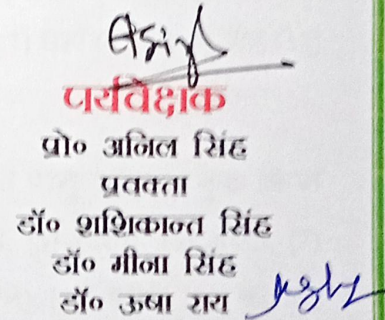 पर्यवेक्षक
प्रो० अनिल सिंह
प्रवक्ता
डॉ० शशिकान्त सिंह
डॉ० मीना सिंह
डॉ० ऊषा राय